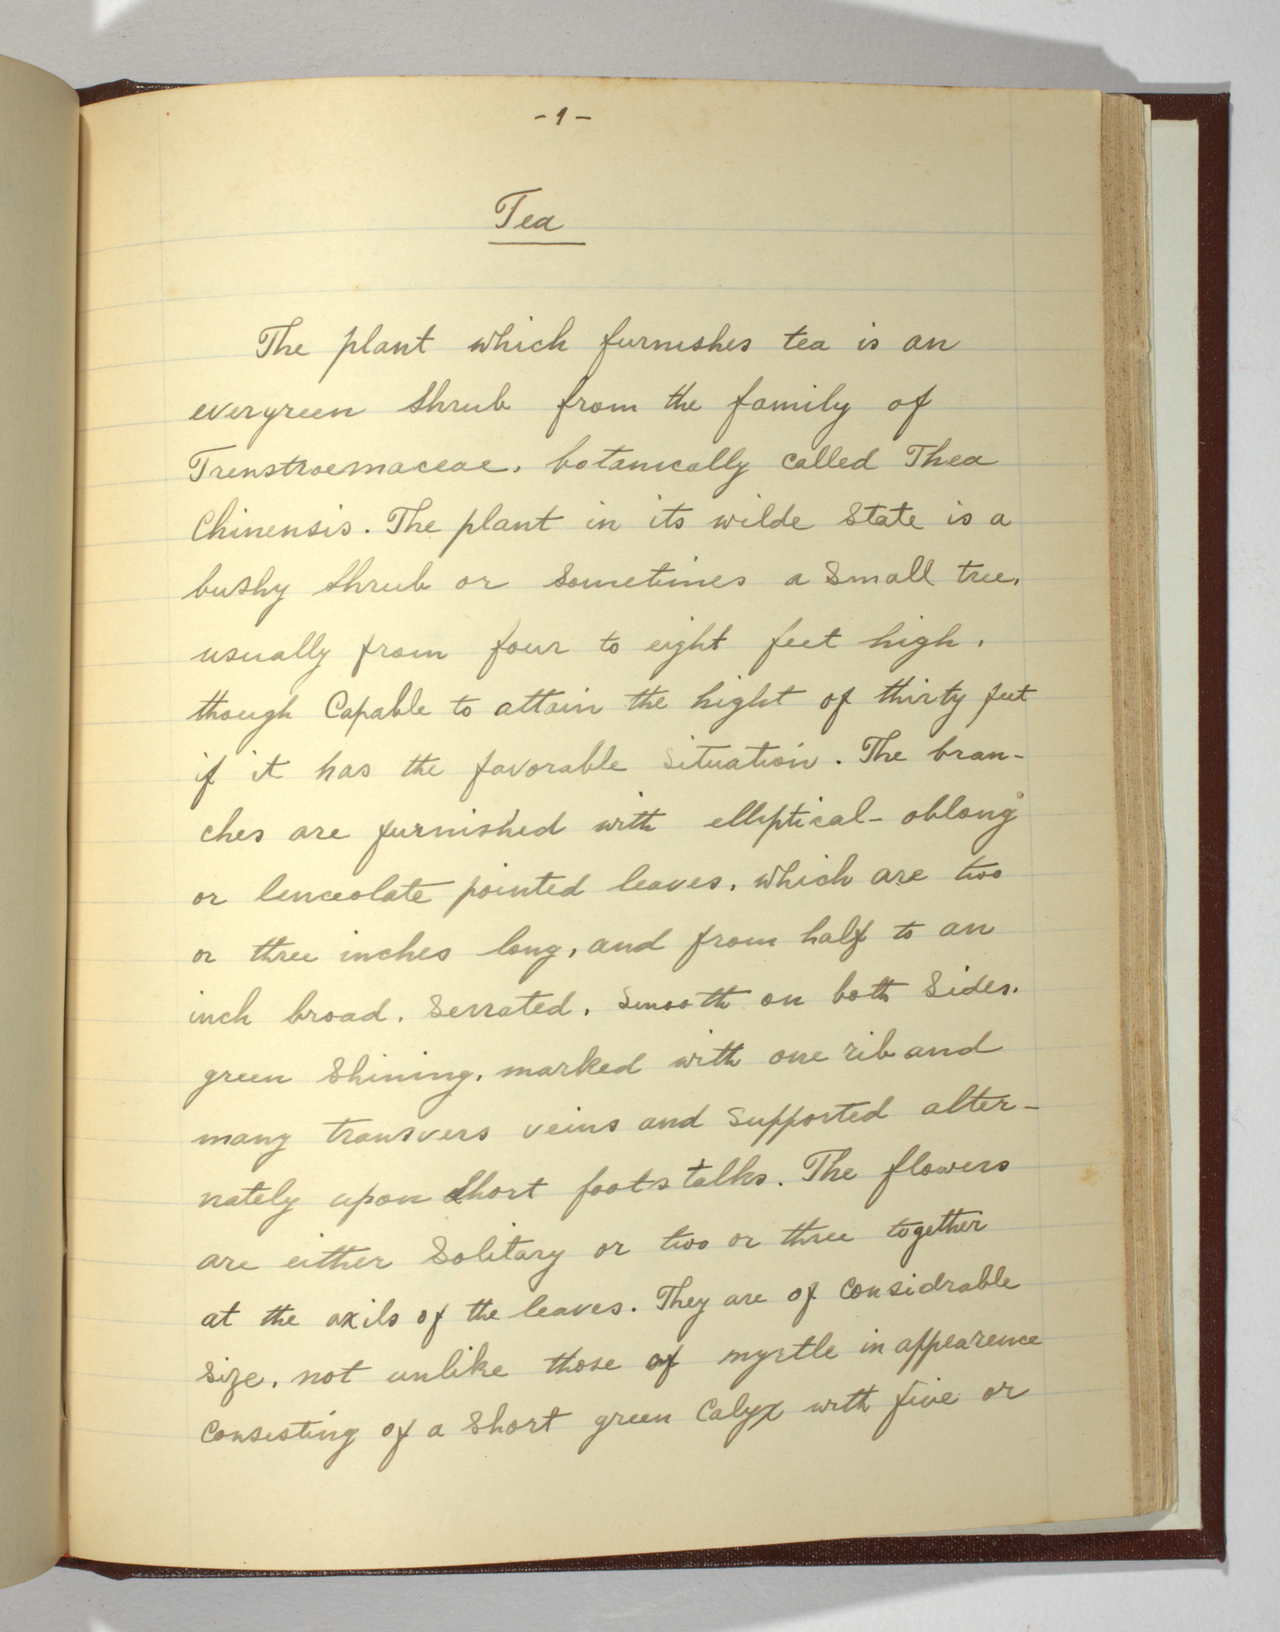 - 1 -
Tea
The plant which furnishes tea is an
evergreen shrub from the family of
Trenstroemaceae, botanically called Thea
Chinensis. The plant in its wilde state is a
bushy shrub or sometimes a small tree,
usually from four to eight feet high,
though capable to attain the hight of thirty feet
if it has the favorable situation. The bran-
ches are furnished with elliptical- oblong
or lenceolate pointed leaves, which are two
or three inches long, and from half to an
inch broad, serrated, smooth on both sides,
green shining, marked with one rib and
many transvers veins and supported alter-
nately upon short footstalks. The flowers
are either solitary or two or three together
at the axils of the leaves. They are of considrable
size, not unlike those of myrtle in appearence
consisting of a short green calyx with five or